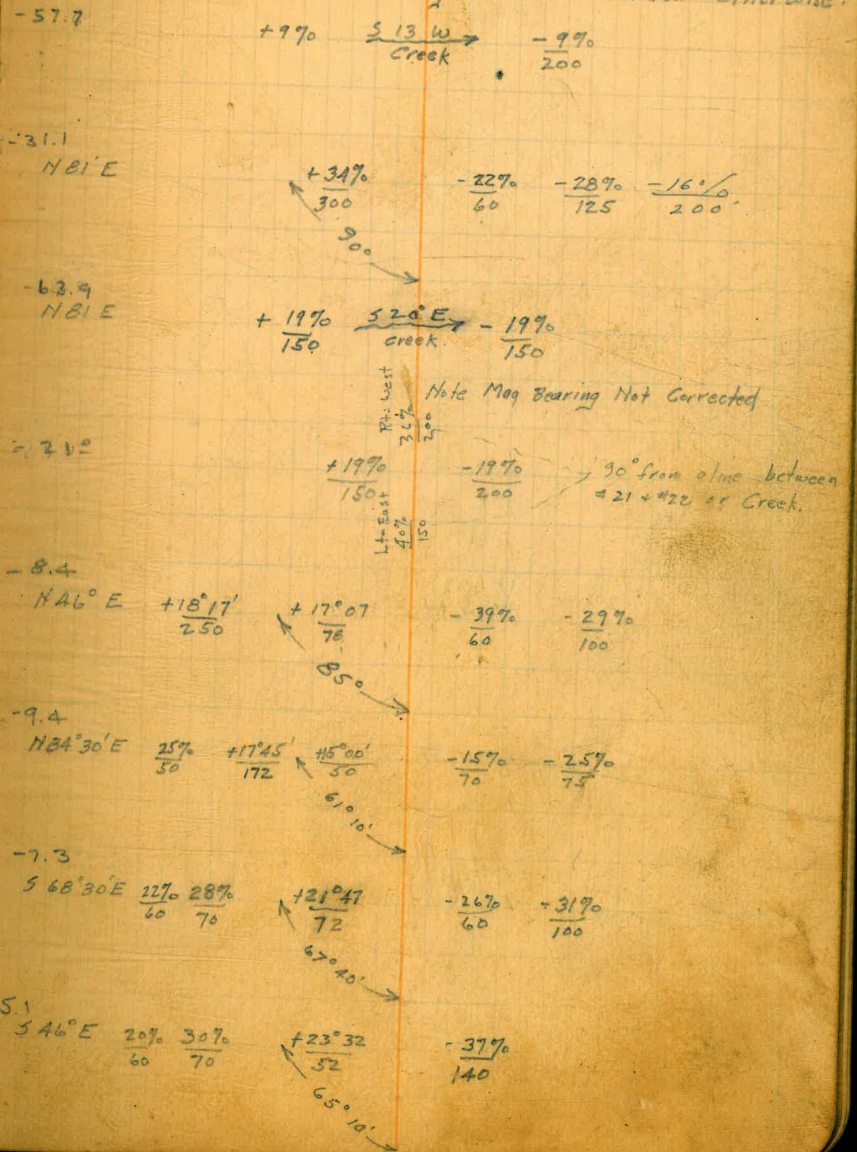 -57.7
+9% S 13 W -9%/200
Creek
-31.1
N 81° E +34%/300 -22%/60 -28%/125 -16%/200
90°
-63.9
N 81 E +19%/150 S 20° E -19%/150
Creek.
Rt. West 36%/200
Note Mag Bearing Not Corrected
+19%/150 -19%/200 90° from a line between
#21 + #22 or Creek.
Lt. East 40%/150
-8.4
N 46° E +18°17'/250 +17°07/78 -39%/60 -29%/100
85°
-9.4
N 84°30' E 25%/50 +17°45'/172 +15°00'/50 -15%/70 -25%/75
61° 10'
-7.3
S 68°30' E 22%/60 28%/70 +21°47/72 -26%/60 -31%/100
67° 40'
5.1
S 46° E 20%/60 30%/70 +23°32/52 -37%/140
65° 10'